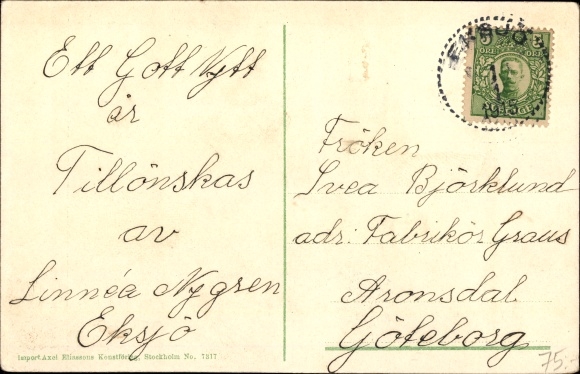 Ett Gott Nytt
år
Tillönskas
av
Linnéa Nygren
Eksjö
Import. Axel Eliassons Konstförlag, Stockholm No. 7317
EKSJÖ
1
1
1915
5 5
ÖRE ÖRE
SVERIGE
Fröken
Svea Björklund
adr: Fabrikör Graus
Aronsdal
Göteborg
75:-